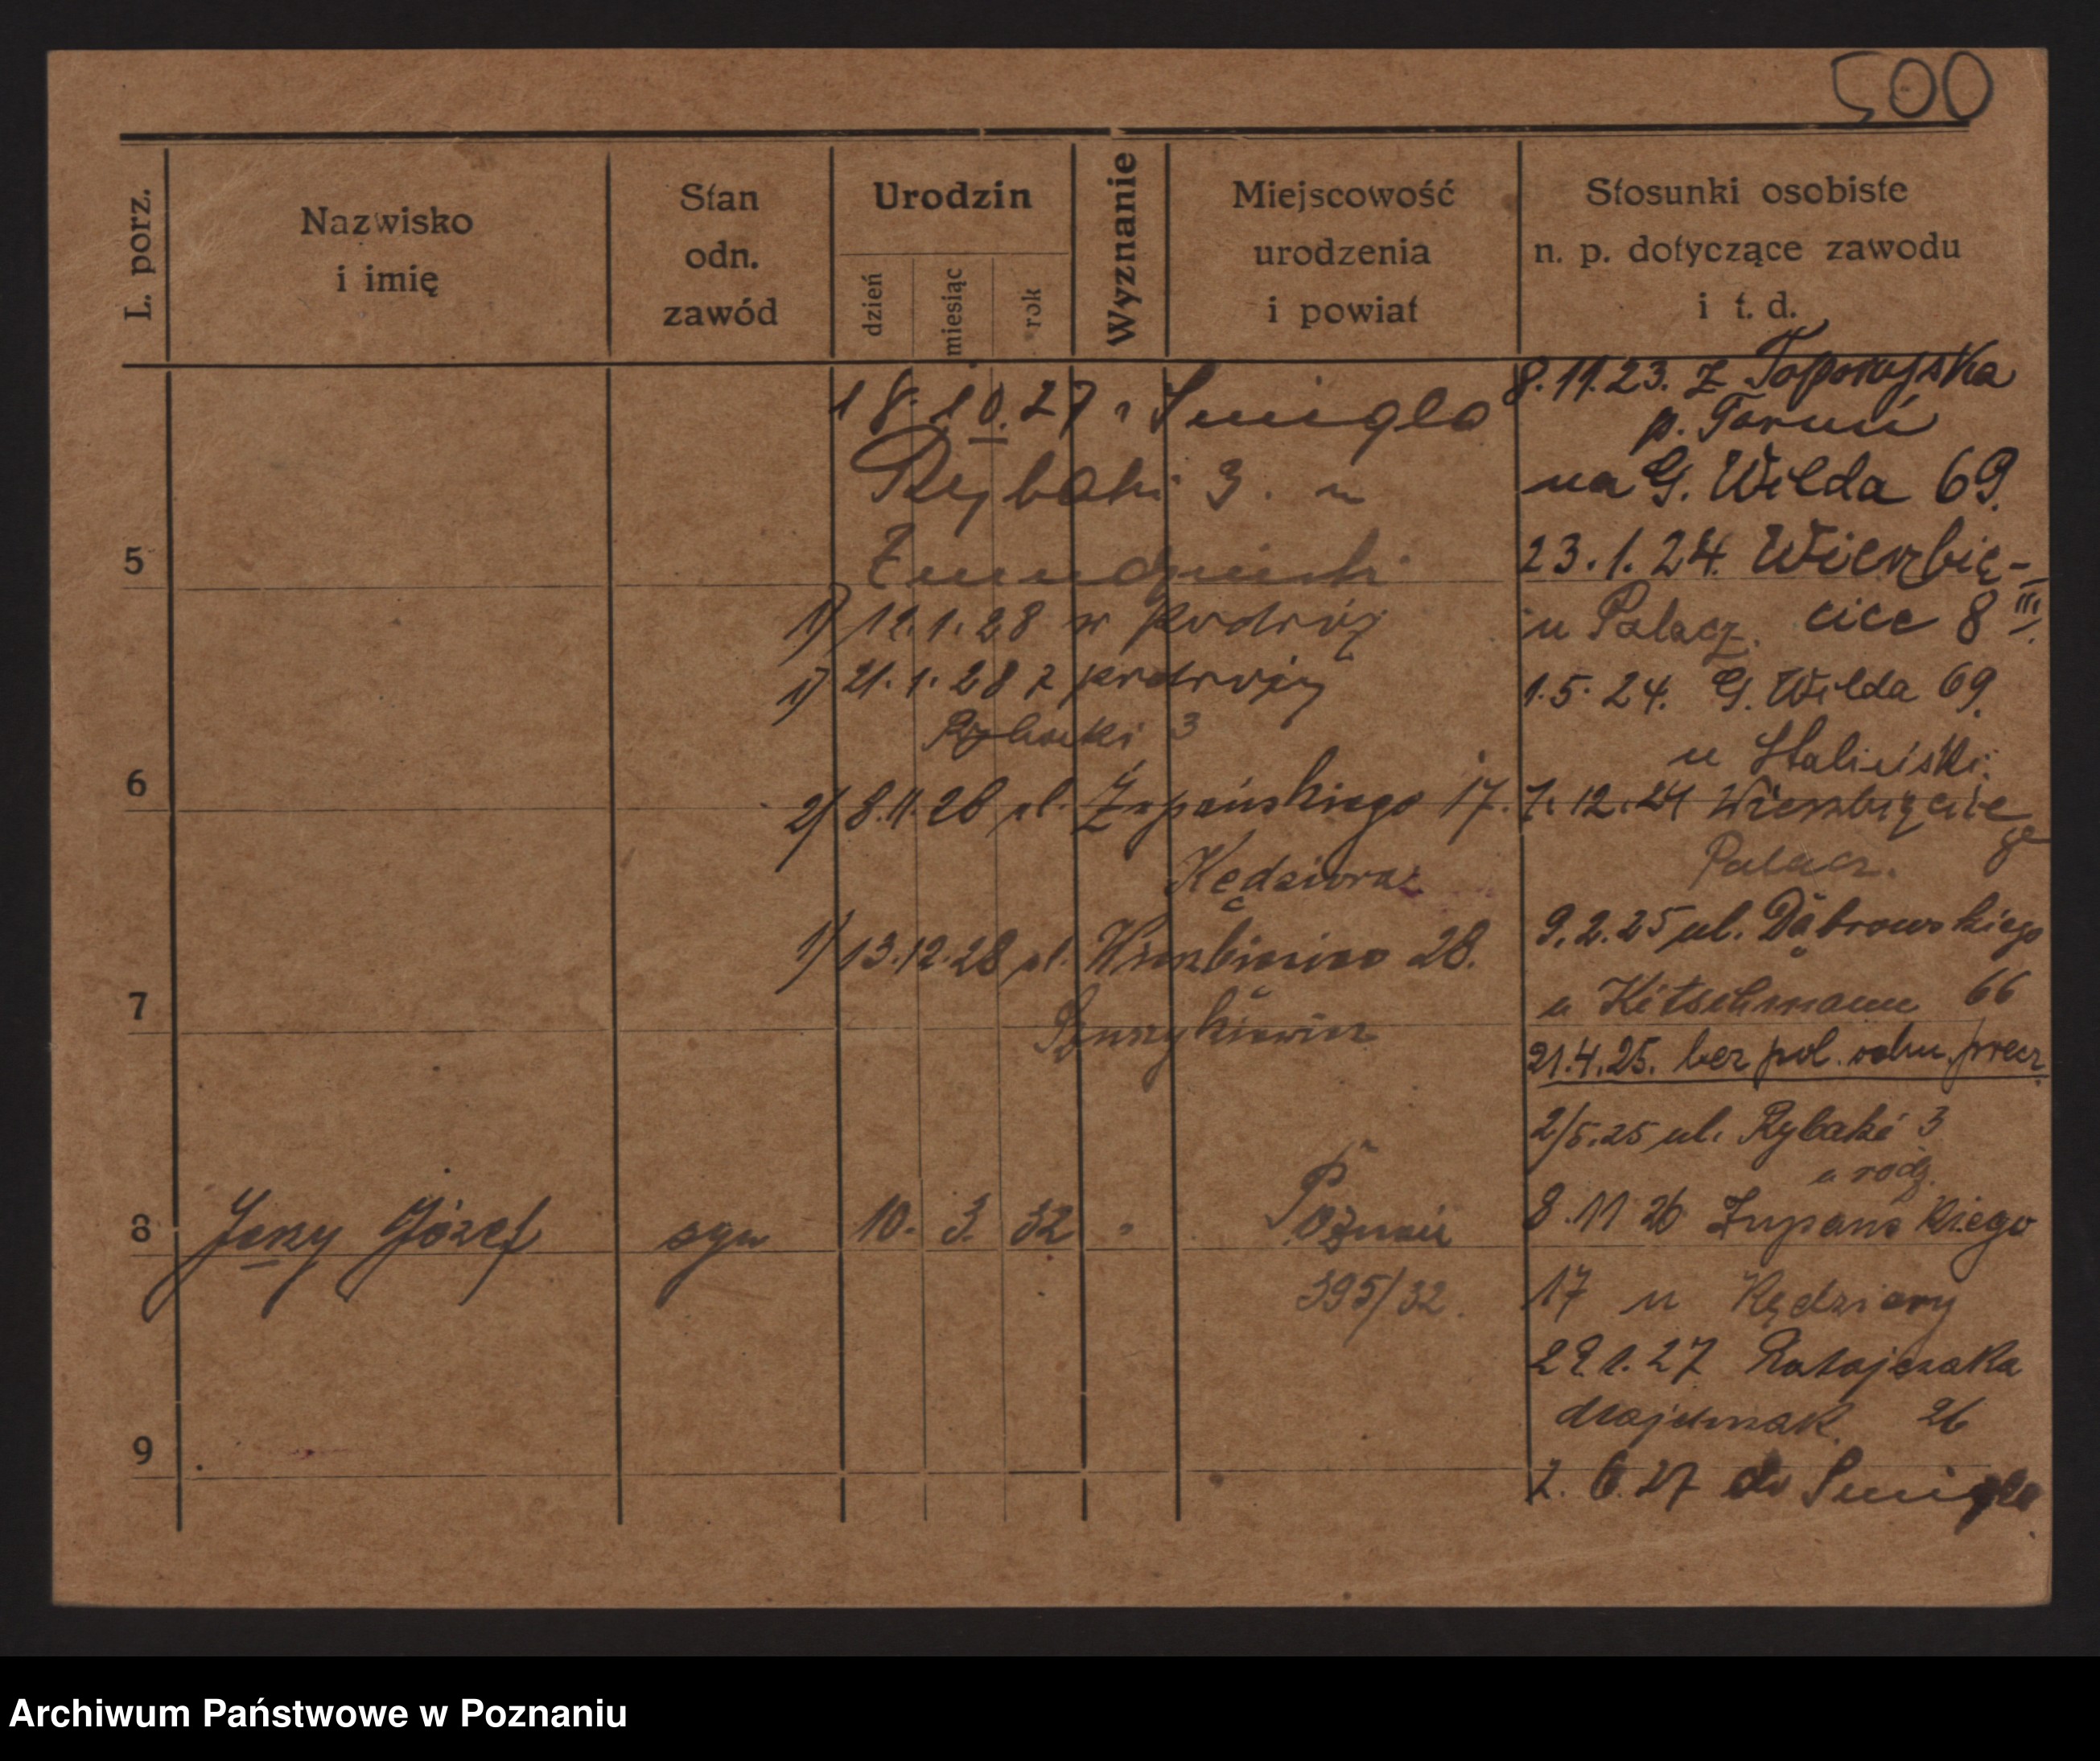 500
L. porz.
Nazwisko
i imię
Stan
odn.
zawód
Urodzin
dzień
miesiąc
rok
Wyznanie
Miejscowość
urodzenia
i powiat
Stosunki osobiste
n. p. dotyczące zawodu
i t. d.
18.10.27 Smigla
Rybaki 3. u
5
1) 12.1.28 w podróż
1) 21.1.28 z podróży
Rybaki 3
6
2) 8.11.28 pl. Żupańskiego 17.
Kędziora
1) 13.12.28 28.
7
8
Jerzy Józef
syn
10. 3. 32 "
Poznań
395/32.
9
8.11.23. z
p. Toruń
na G. Wilda 69.
23.1.24. Wierzbię-
u Palacz. cice 8 III
1.5.24. G. Wilda 69.
u Staliński
7.12.24 Wierzbięcice
Palacz. 8
9.2.25 ul. Dąbrowskiego
u Kitschmann 66
21.4.25. bez pol. odm. przez
2/5.25 ul. Rybaki 3
u rodz.
8.11 26 Zupanskiego
17 u Kędziory
29.1.27 Ratajczaka
26
2.6.27 do Smigla
Archiwum Państwowe w Poznaniu